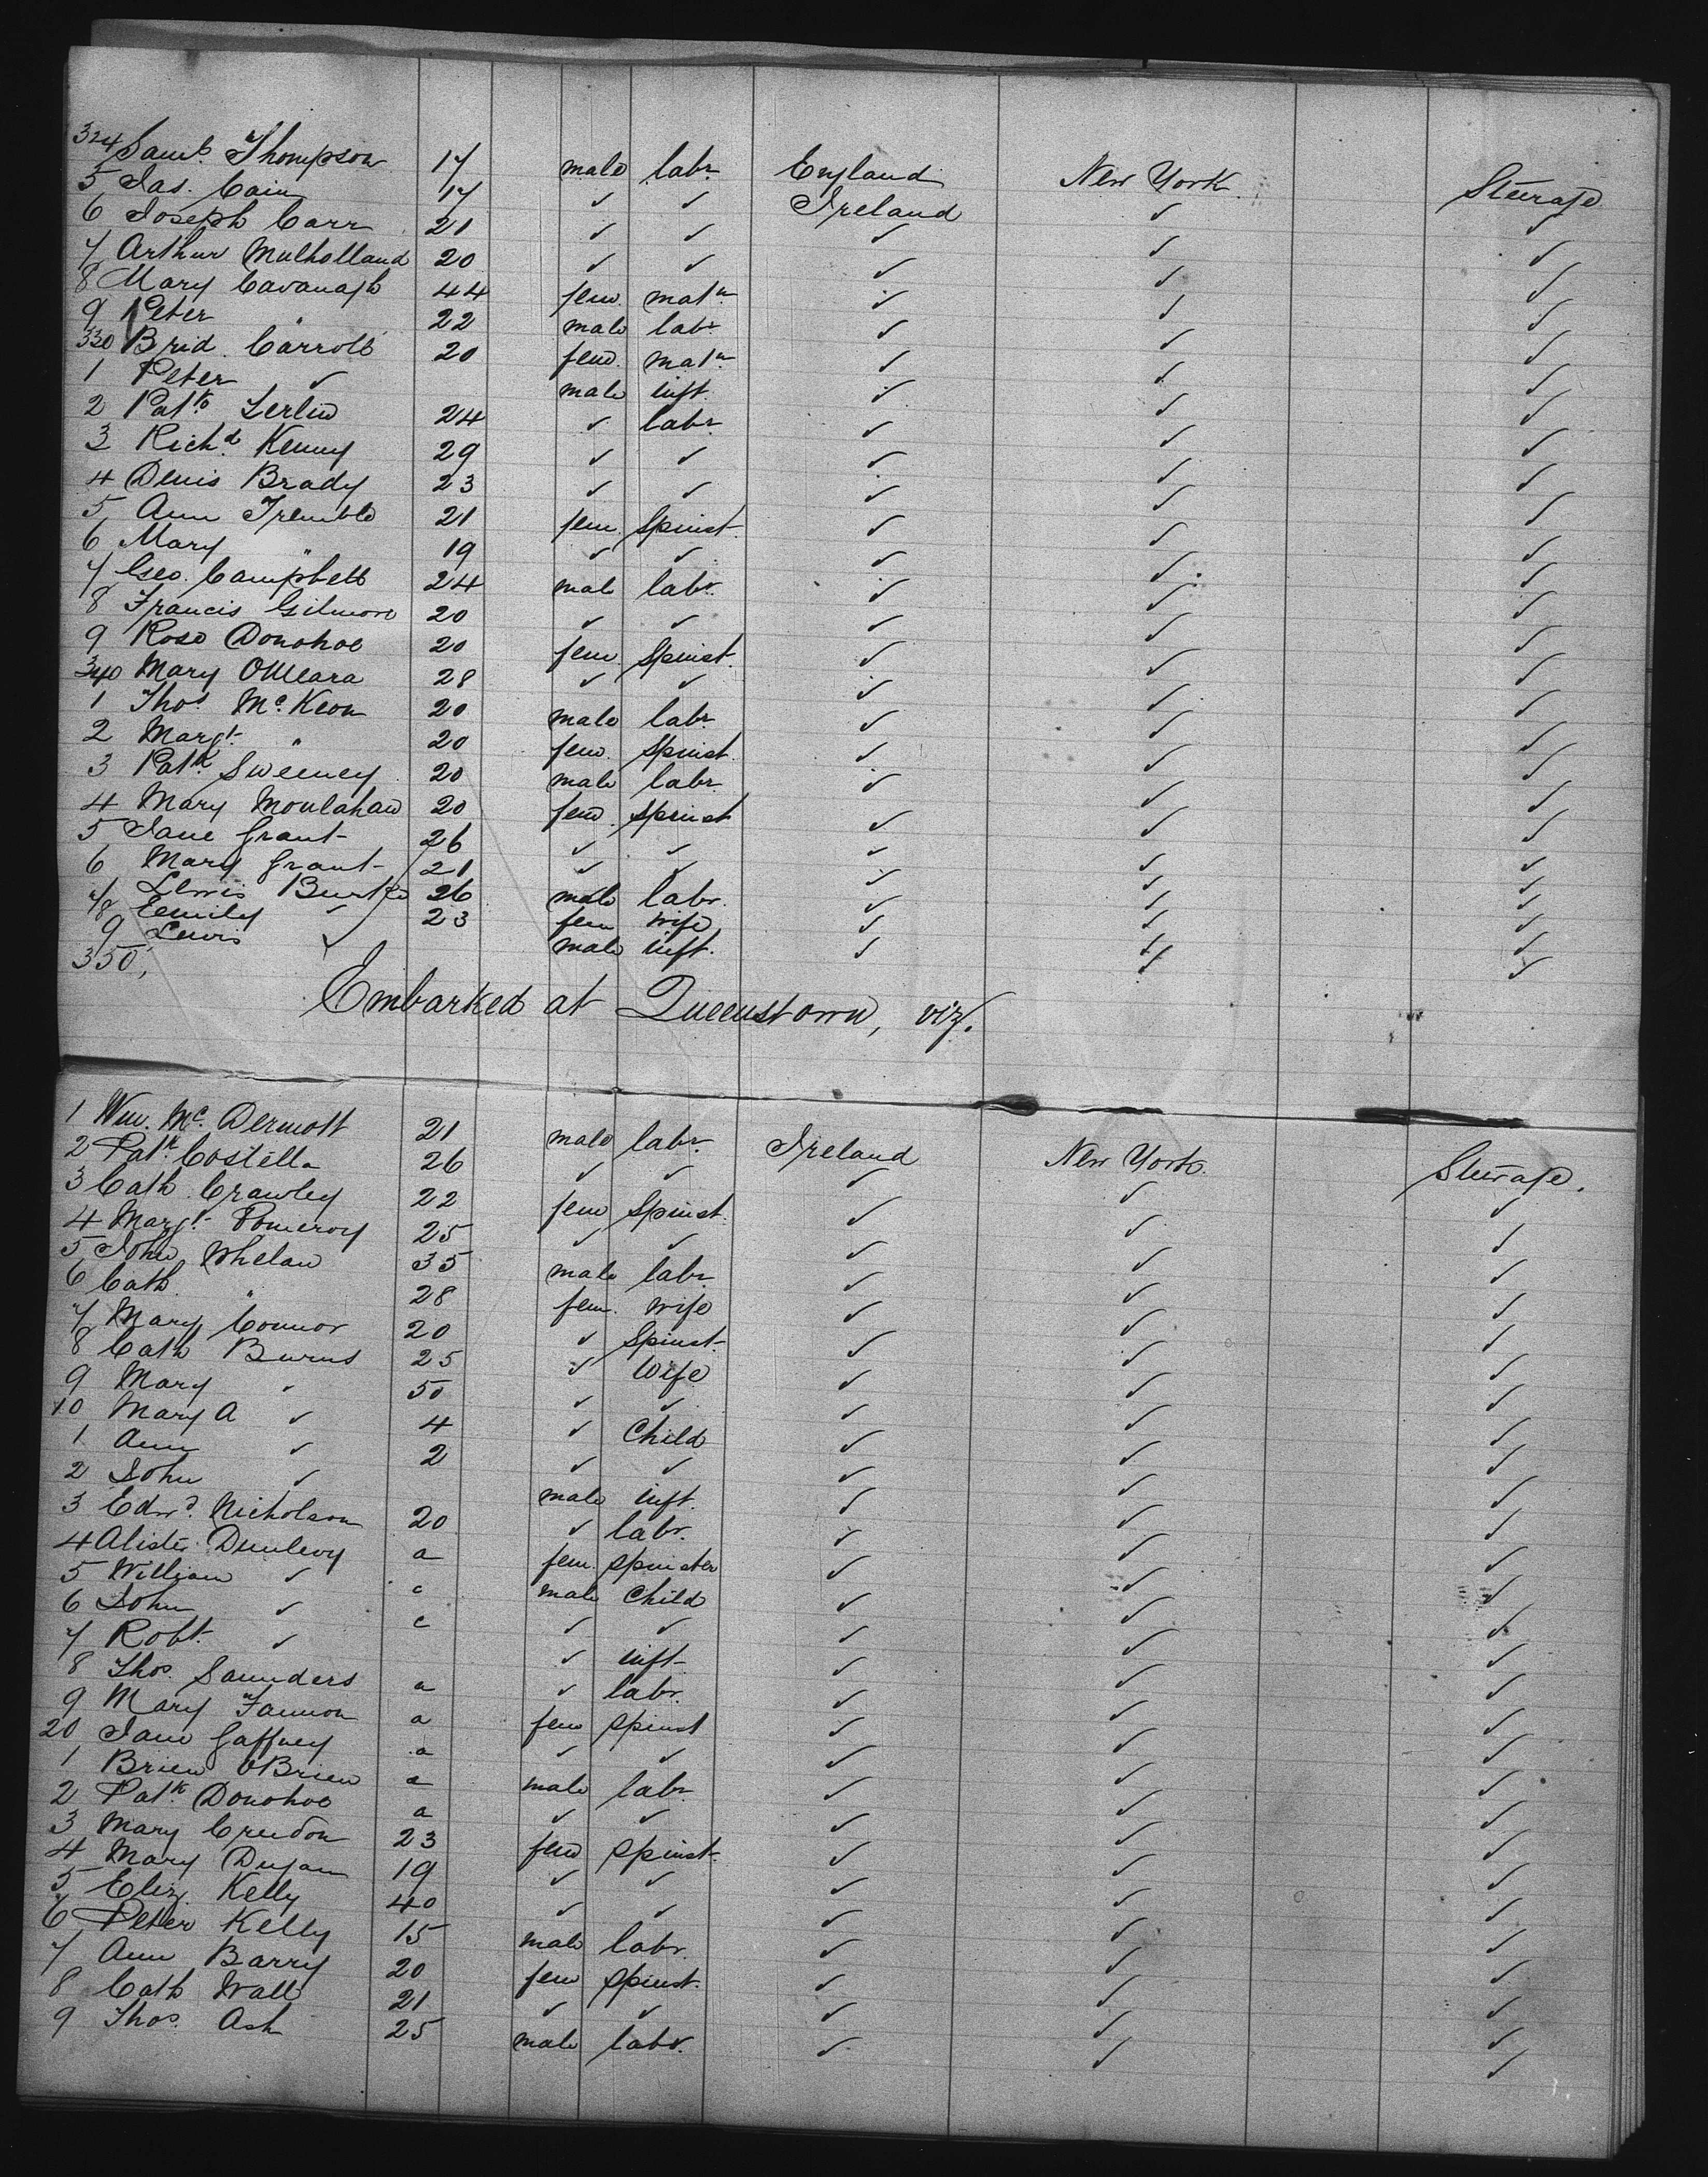 324 Saml. Thompson 17 male labr. England New York Steerage
5 Jas. Cain 17 ✓ ✓ Ireland ✓ ✓
6 Joseph Carr 21 ✓ ✓ ✓ ✓ ✓
7 Arthur Mulholland 20 ✓ ✓ ✓ ✓ ✓
8 Mary Cavanagh 44 fem. matn ✓ ✓ ✓
9 Peter " 22 male labr ✓ ✓ ✓
330 Brid. Carroll 20 fem. matn. ✓ ✓ ✓
1 Peter ✓ male inft. ✓ ✓ ✓
2 Patk 24 ✓ labr ✓ ✓ ✓
3 Richd. Kenny 29 ✓ ✓ ✓ ✓ ✓
4 Denis Brady 23 ✓ ✓ ✓ ✓ ✓
5 Ann Tremble 21 fem. Spinst. ✓ ✓ ✓
6 Mary " 19 ✓ ✓ ✓ ✓ ✓
7 Geo. Campbell 24 male labr. ✓ ✓ ✓
8 Francis Gilmore 20 ✓ ✓ ✓ ✓ ✓
9 Rose Donohoe 20 fem. Spinst. ✓ ✓ ✓
340 Mary OMeara 28 ✓ ✓ ✓ ✓ ✓
1 Thos. McKeon 20 male labr ✓ ✓ ✓
2 Margt. " 20 fem. Spinst. ✓ ✓ ✓
3 Patk. Sweeney 20 male labr. ✓ ✓ ✓
4 Mary Moulahan 20 fem. Spinst ✓ ✓ ✓
5 Jane Grant 26 ✓ ✓ ✓ ✓ ✓
6 Mary Grant 21 ✓ ✓ ✓ ✓ ✓
7 Lewis Burke 26 male labr. ✓ ✓ ✓
8 Emily ✓ 23 fem wife ✓ ✓ ✓
9 Lewis ✓ male inft. ✓ ✓ ✓
350,
Embarked at Queenstown, viz.
1 Wm. Mc. Dermott 21 male labr. Ireland New York. Steerage.
2 Patk. Costella 26 ✓ ✓ ✓ ✓ ✓
3 Cath Crawley 22 fem Spinst. ✓ ✓ ✓
4 Margt. Pomeroy 25 ✓ ✓ ✓ ✓ ✓
5 John Whelan 35 male labr. ✓ ✓ ✓
6 Cath. " 28 fem. wife ✓ ✓ ✓
7 Mary Connor 20 ✓ Spinst. ✓ ✓ ✓
8 Cath Burns 25 ✓ Wife ✓ ✓ ✓
9 Mary ✓ 50 ✓ ✓ ✓ ✓ ✓
10 Mary A ✓ 4 ✓ Child ✓ ✓ ✓
1 Ann ✓ 2 ✓ ✓ ✓ ✓ ✓
2 John ✓ male inft. ✓ ✓ ✓
3 Edwd. Nicholson 20 ✓ labr. ✓ ✓ ✓
4 Dunlevy a fem. Spinster ✓ ✓ ✓
5 William ✓ c male Child ✓ ✓ ✓
6 John ✓ c ✓ ✓ ✓ ✓ ✓
7 Robt. ✓ ✓ inft ✓ ✓ ✓
8 Thos. Saunders a ✓ labr. ✓ ✓ ✓
9 Mary Fannon a fem Spinst ✓ ✓ ✓
20 Jane Gaffney a ✓ ✓ ✓ ✓ ✓
1 Brien OBrien a male labr. ✓ ✓ ✓
2 Patk. Donohoe a ✓ ✓ ✓ ✓ ✓
3 Mary Creedon 23 fem Spinst. ✓ ✓ ✓
4 Mary Dugan 19 ✓ ✓ ✓ ✓ ✓
5 Eliz. Kelly 40 ✓ ✓ ✓ ✓ ✓
6 Peter Kelly 15 male labr. ✓ ✓ ✓
7 Ann Barry 20 fem Spinst. ✓ ✓ ✓
8 Cath Wall 21 ✓ ✓ ✓ ✓ ✓
9 Thos. Ash 25 male labr. ✓ ✓ ✓